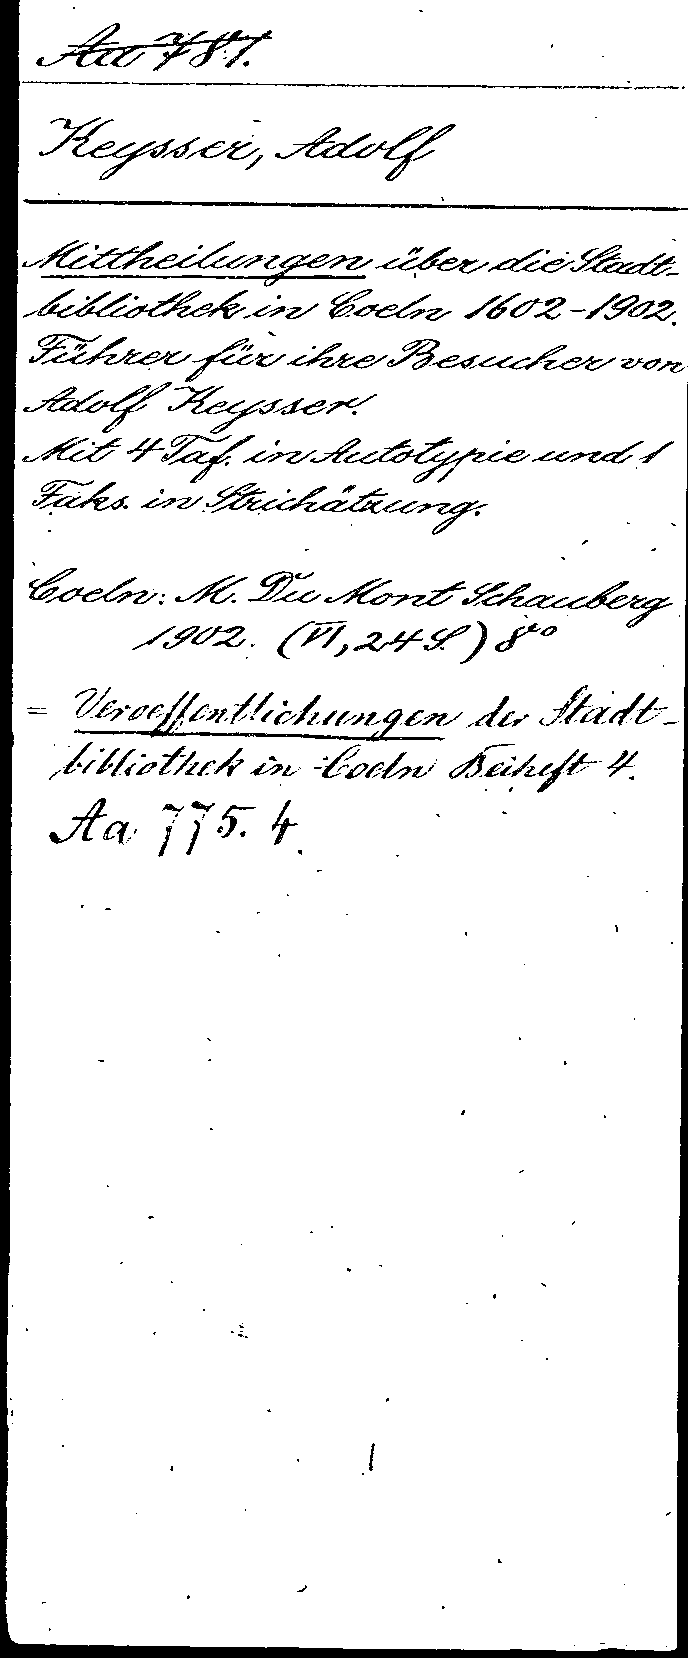 Aa 781.
Keysser, Adolf
Mittheilungen über die Stadt-
bibliothek in Coeln 1602-1902.
Führer für ihre Besucher von
Adolf Keysser.
Mit 4 Taf. in Autotypie und 1
Faks. in Strichätzung.
Coeln: M. Du Mont Schauberg
1902. (VI, 24 S.) 8°
= Veroeffentlichungen der Stadt-
bibliothek in Coeln Beiheft 4.
Aa 775. 4.